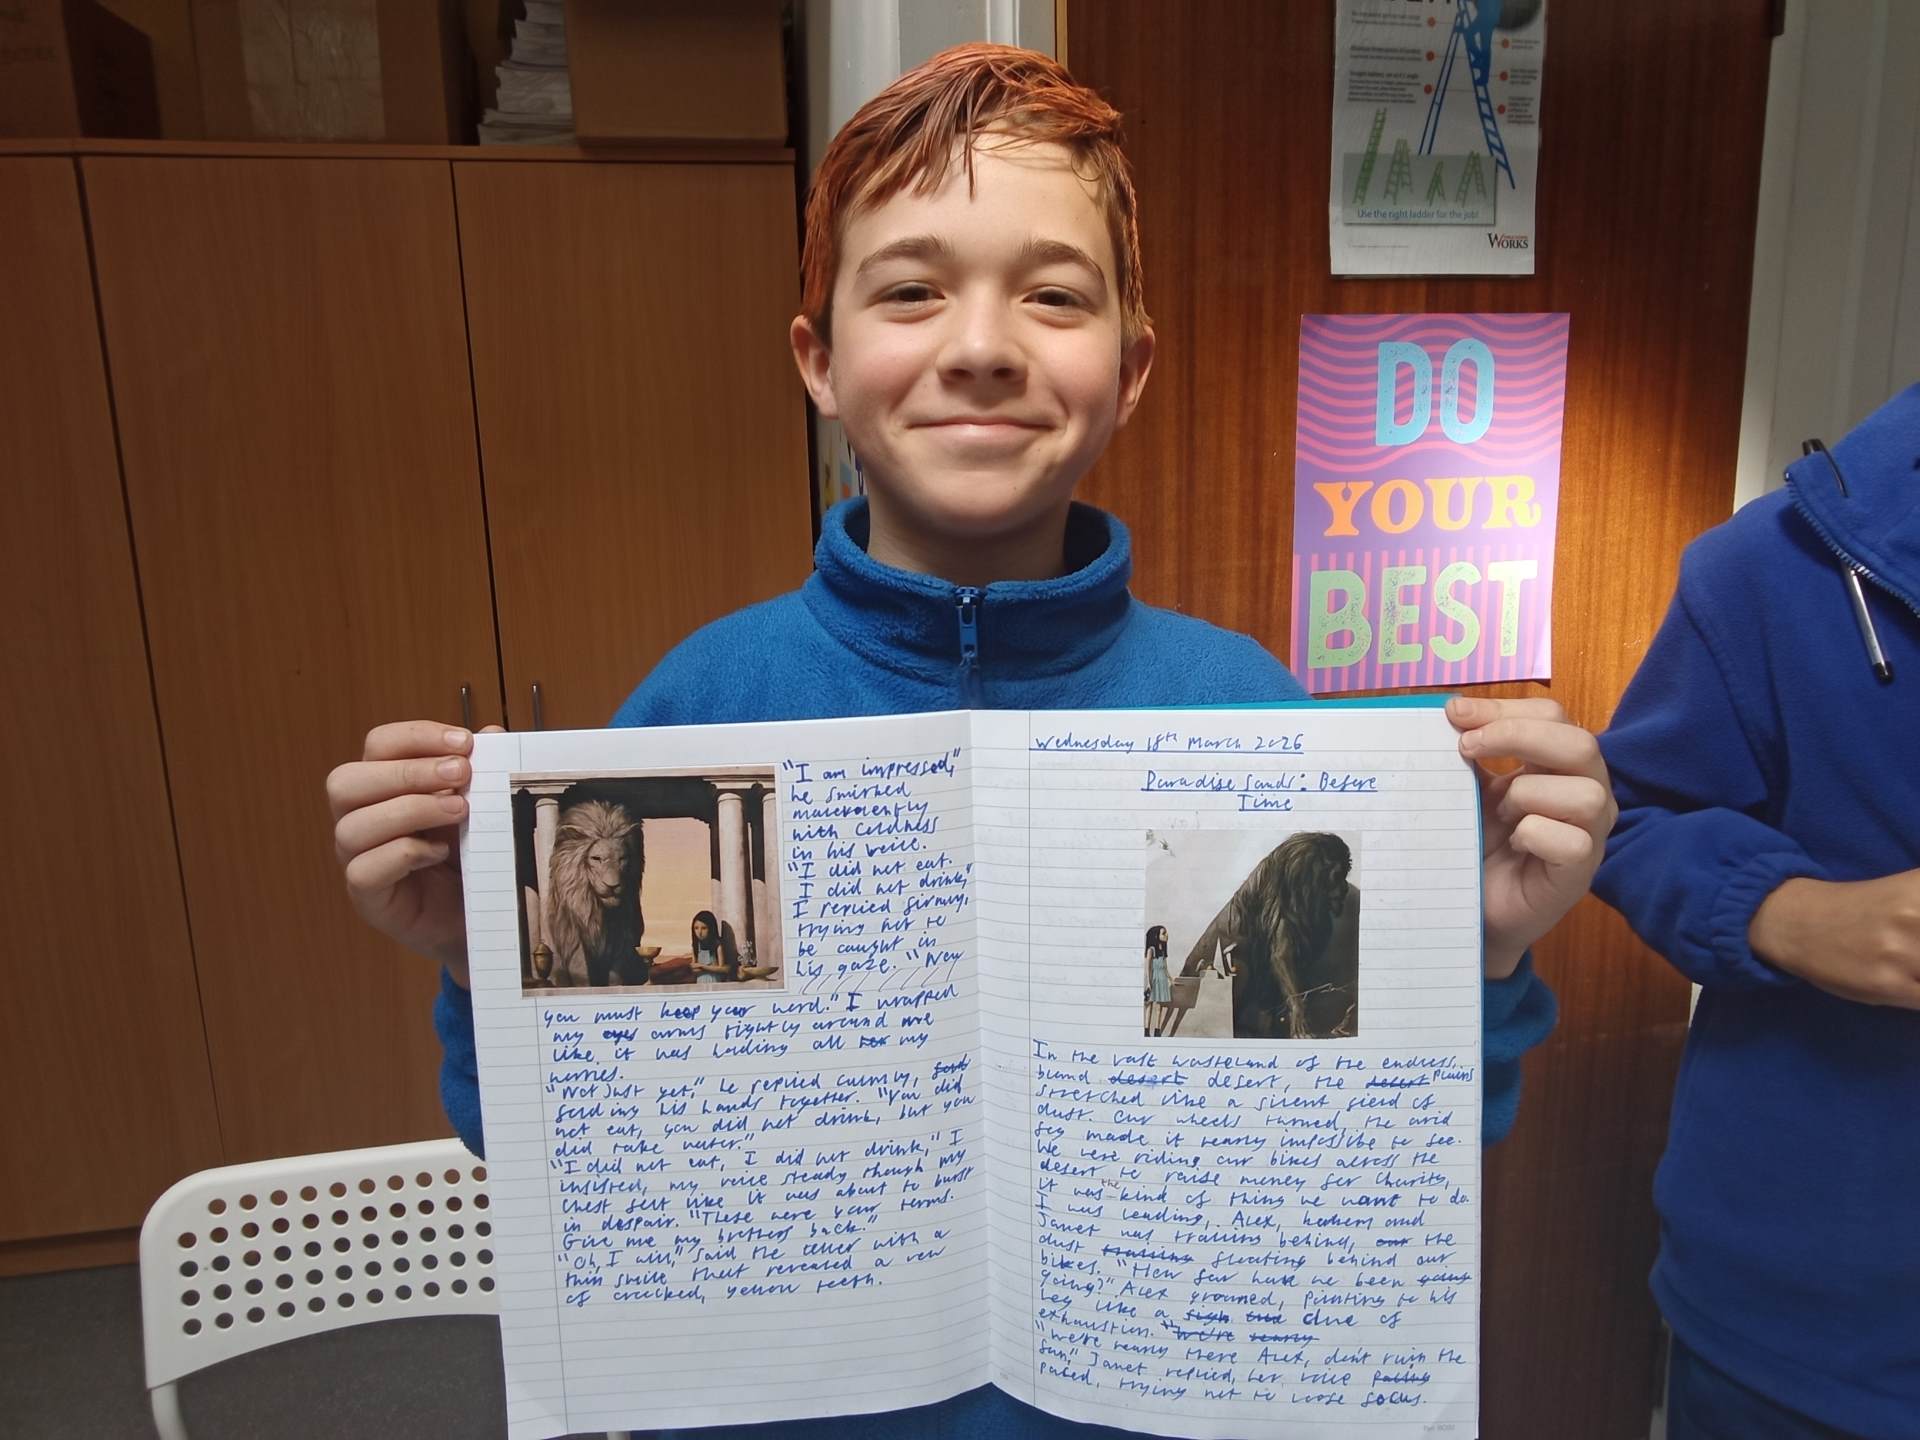 Use the right ladder for the job!
WORKS
DO
YOUR
BEST
"I am impressed,"
he smirked
malevolently
with coldness
in his voice.
"I did not eat.
I did not drink,"
I replied firmly,
trying not to
be caught in
his gaze. "Now
you must keep your word." I wrapped
my eyes arms tightly around me
like it was holding all my
worries.
"Not just yet," he replied calmly,
folding his hands together. "You did
not eat, you did not drink, but you
did take water."
"I did not eat, I did not drink," I
insisted, my voice steady though my
chest felt like it was about to burst
in despair. "These were your terms.
Give me my brothers back."
"Oh, I will," said the ruler with a
thin smile that revealed a row
of cracked, yellow teeth.
Wednesday 18th March 2026
Paradise Sands: Before
Time
In the vast wasteland of the endless,
bland desert desert, the desert plains
stretched like a silent field of
dust. Our wheels turned, the arid
fog made it nearly impossibe to see.
We were riding our bikes across the
desert to raise money for charity,
it was the kind of thing we want to do.
I was leading, Alex, and
Janet was trailing behind, our the
dust trailing floating behind our
bikes. "How far have we been going
going?" Alex groaned, pointing to his
leg like a sign clue of
exhaustion. "We're nearly
"We're nearly there Alex, don't ruin the
fun," Janet replied, her voice
paced, trying not to loose focus.